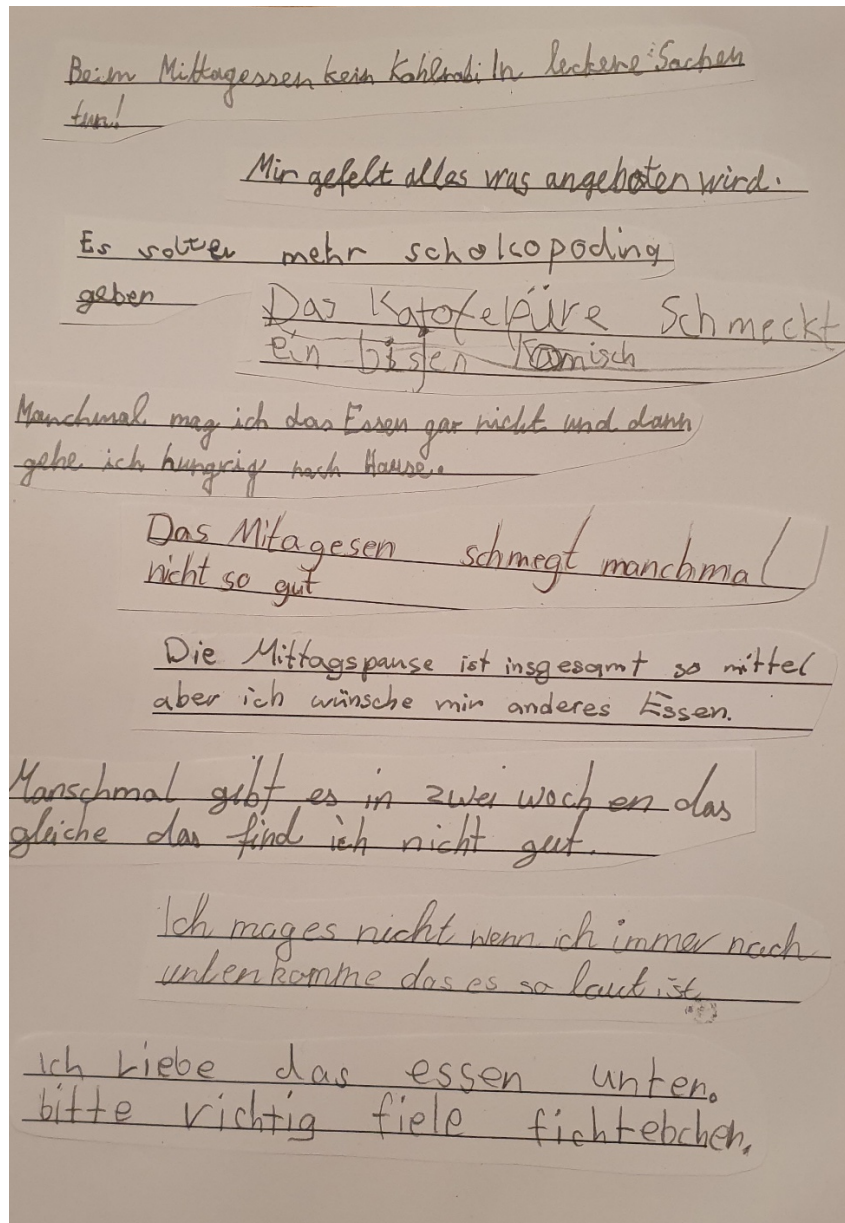 Beim Mittagessen kein Kohlrabi In leckere Sachen
tun!
Mir gefelt alles was angeboten wird.
Es solten mehr scholcopoding
geben
Das Katofelpüre Schmeckt
ein bisjen Komisch
Manchmal mag ich das Essen gar nicht und dann
gehe ich hungrig nach Hause.
Das Mitagesen schmegt manchmal
nicht so gut
Die Mittagspause ist insgesamt so mittel
aber ich wünsche mir anderes Essen.
Manschmal gibt es in zwei wochen das
gleiche das find ich nicht gut.
Ich mages nicht wenn ich immer nach
untenkomme das es so laut ist
Ich Liebe das essen unten.
bitte richtig fiele fichtebchen.